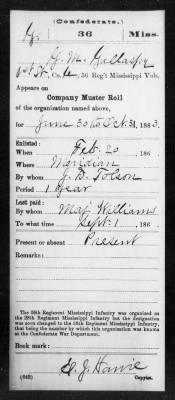 (Confederate.)
G. 36 Miss.
G. M. Gillaspy
1st Lt., Co. G, 36 Reg't Mississippi Vols.
Appears on
Company Muster Roll
of the organization named above,
for June 30 to Oct. 31, 1863.
Enlisted:
When Feb. 20, 186
Where Meridian
By whom J. B. Tolson
Period 1 year
Last paid:
By whom Maj Williams
To what time Sept. 1, 186
Present or absent Present
Remarks:
The 36th Regiment Mississippi Infantry was organized as
the 28th Regiment Mississippi Infantry but the designation
was soon changed to the 36th Regiment Mississippi Infantry,
that being the number by which this organization was known
at the Confederate War Department.
Book mark:
(642) Copyist.